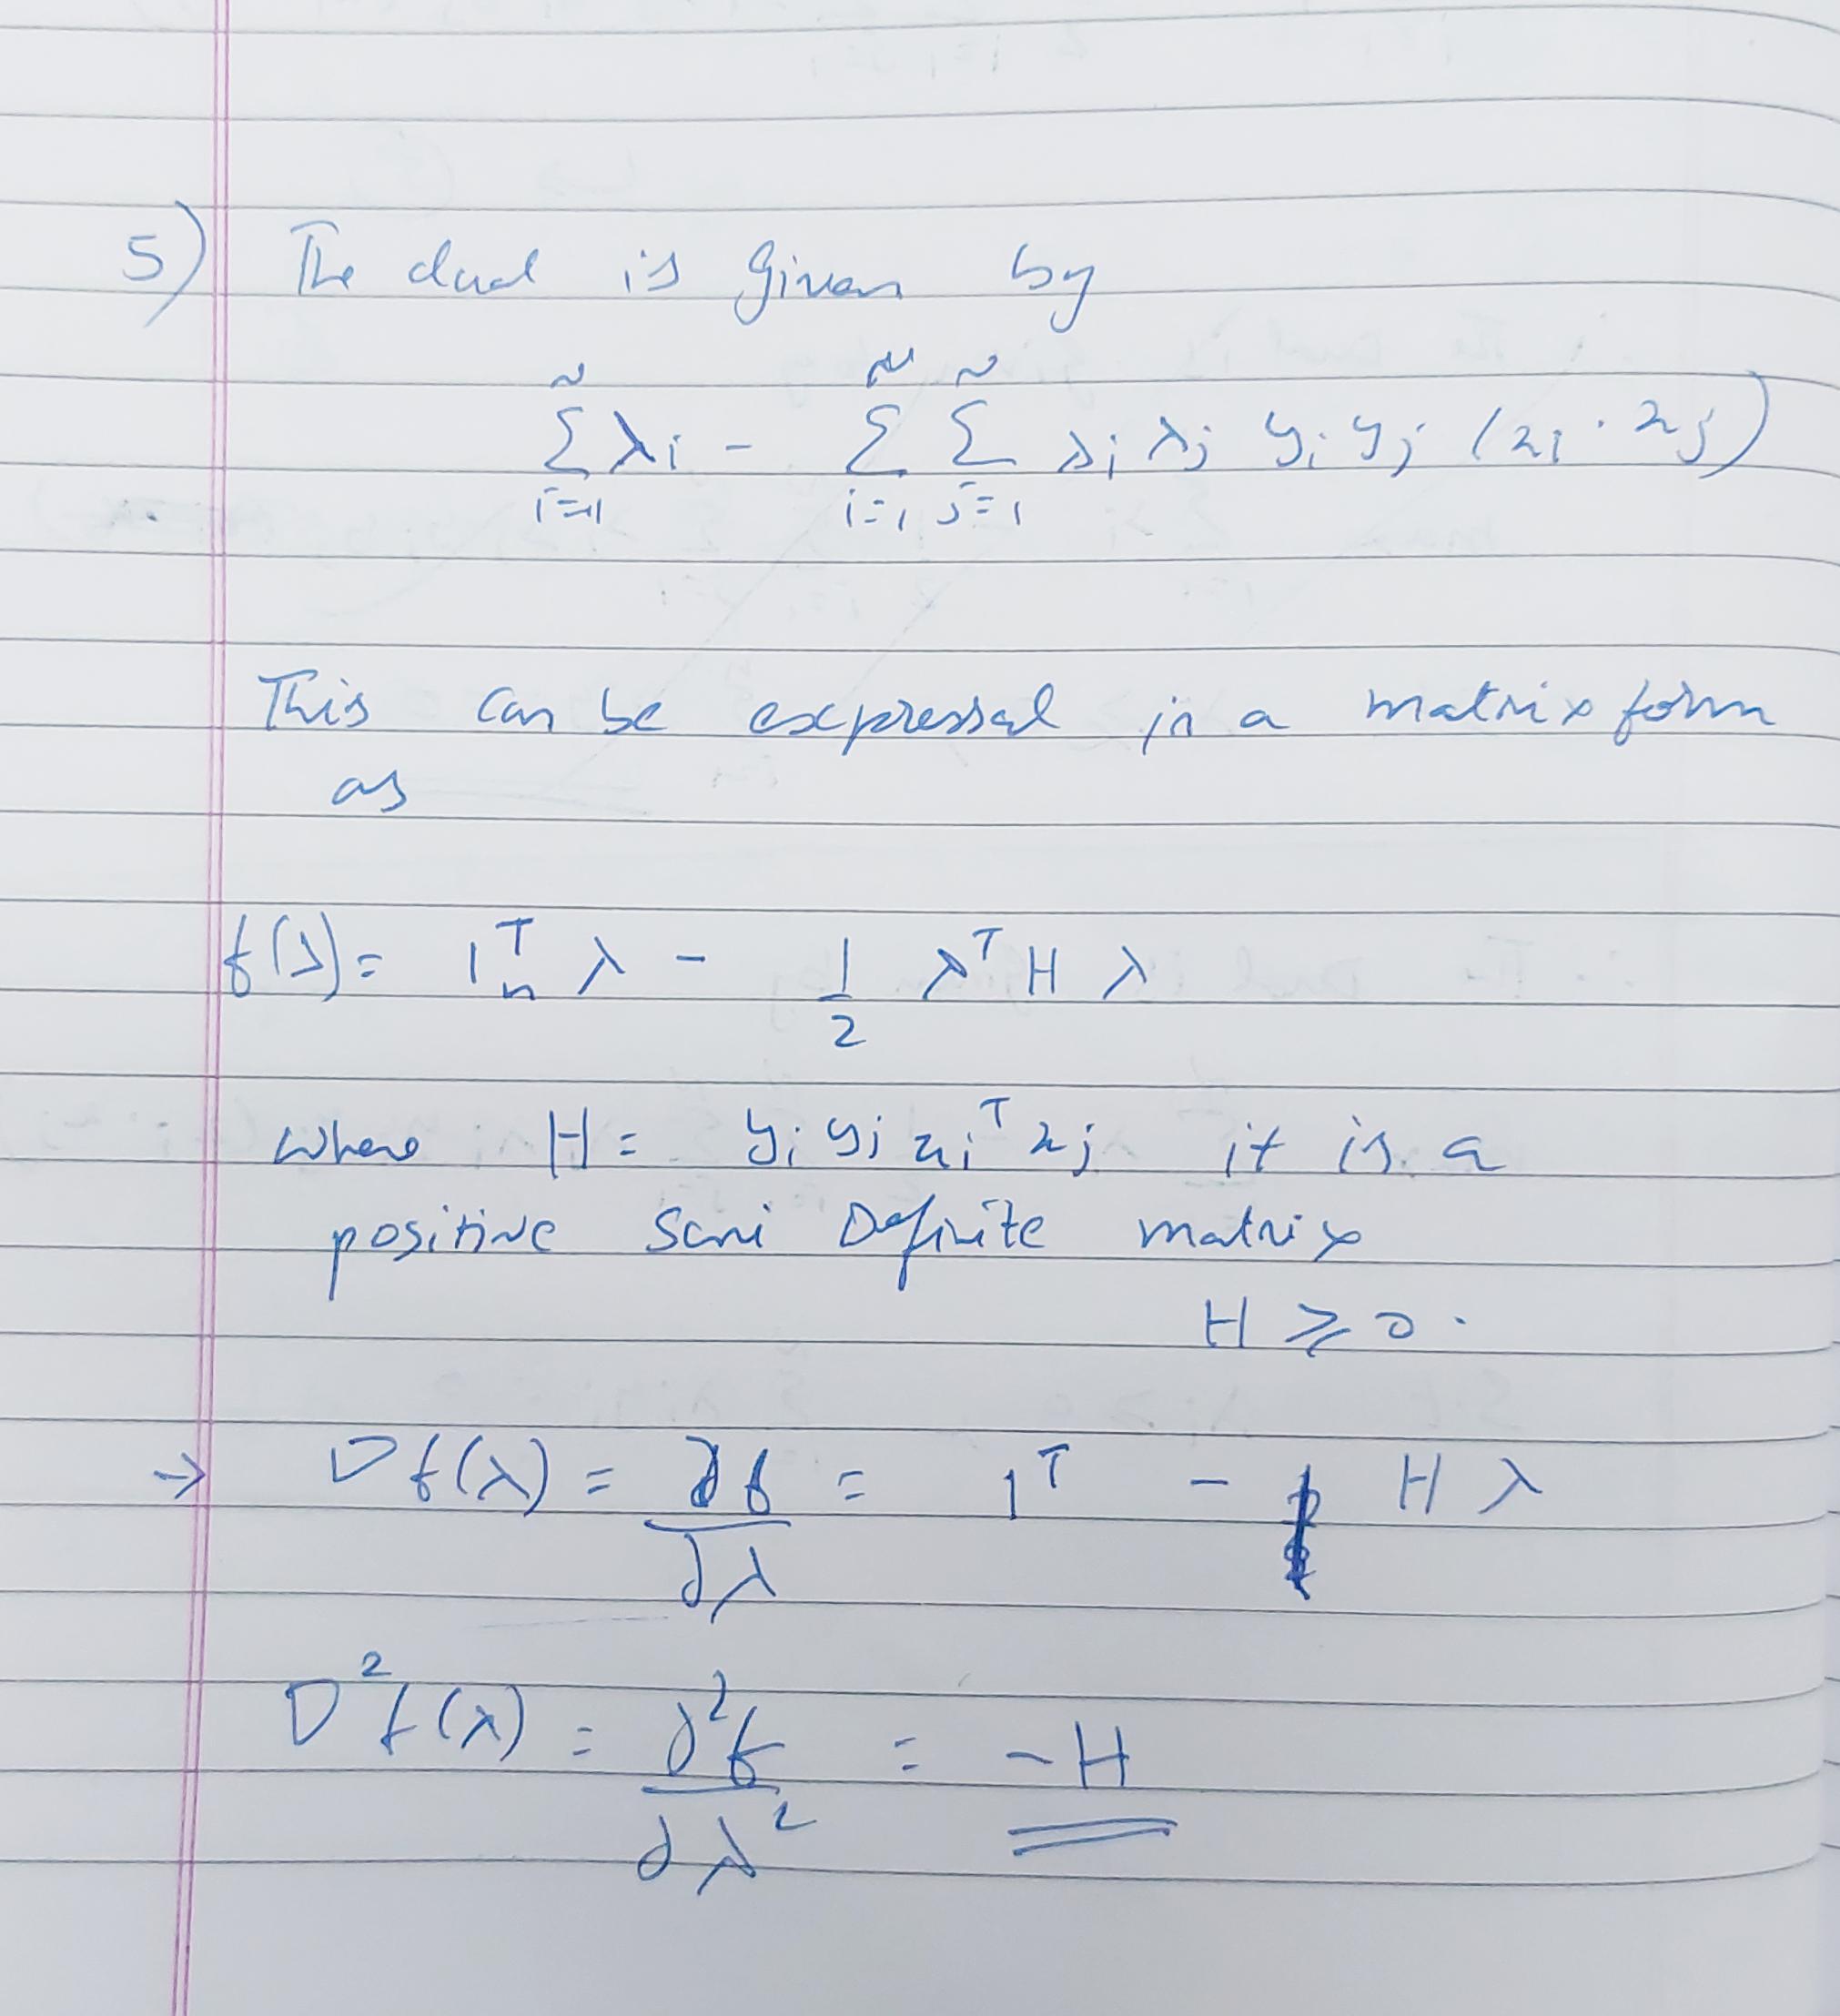 5) The dual is given by
N∑i=1 λi - N∑i=1 N∑j=1 λi λj yi yj (xi · xj)
This can be expressed in a matrix form
as
f(λ) = 1ₙᵀ λ - 1/2 λᵀ H λ
where H = yi yj xiᵀ xj it is a
positive Semi Definite matrix
H ⩾ 0.
→ ∇f(λ) = ∂f/∂λ = 1ᵀ - H λ
∇²f(λ) = ∂²f/∂λ² = -H